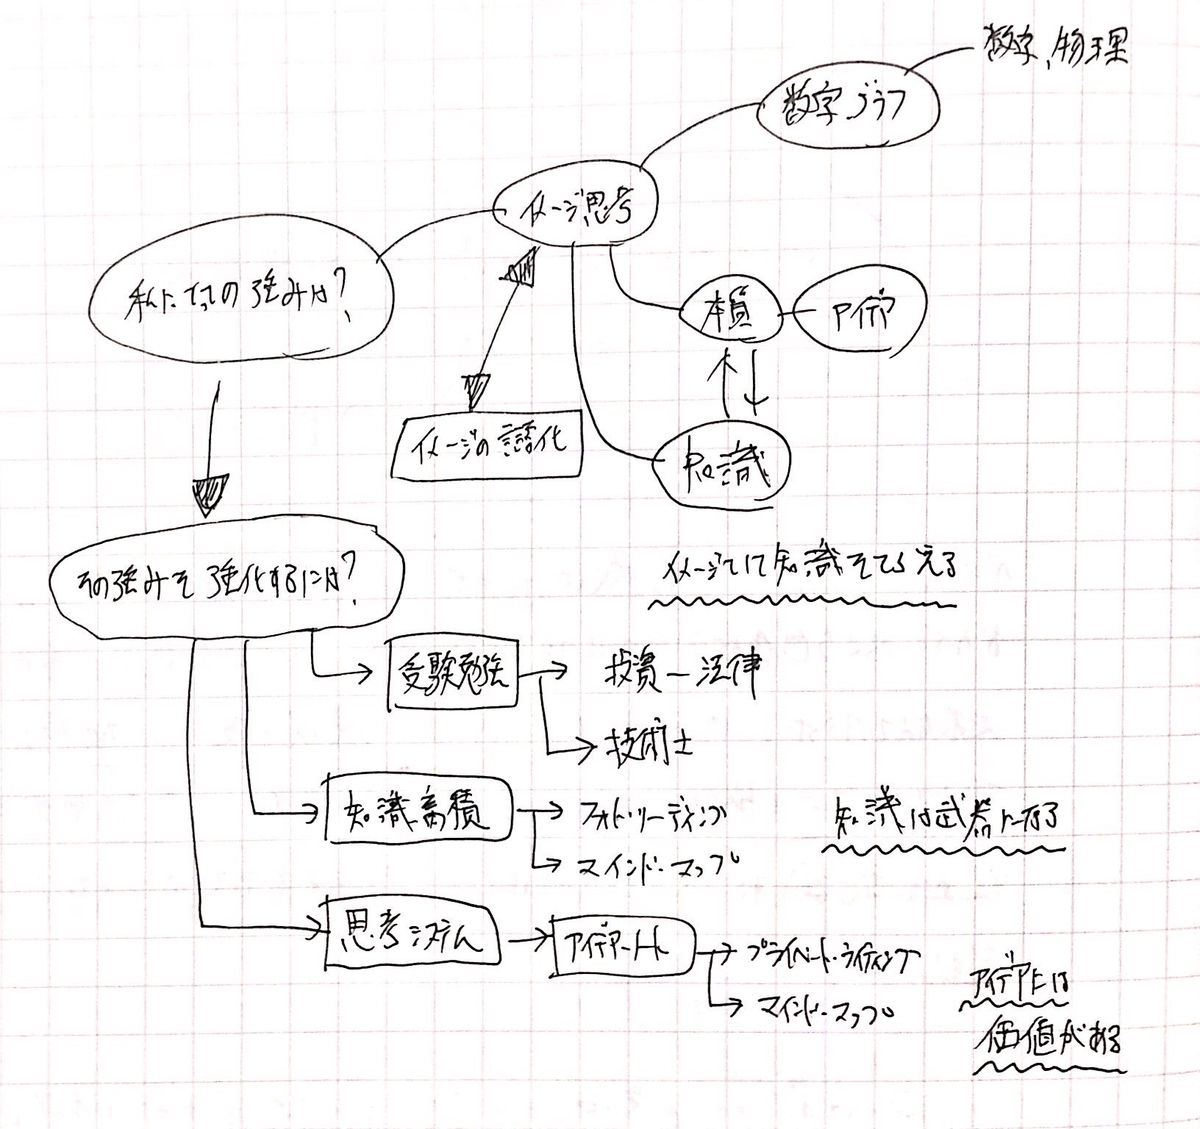 数学、物理
数字グラフ
イメージ思考
私にとっての強みは?
本質
アイデア
イメージの言語化
知識
その強みを強化するには?
イメージで知識をとらえる
受験勉強
投資ー法律
技術士
知識蓄積
フォト・リーディング
知識は武器になる
マインド・マップ
思考システム
アイデアノート
プライベート・ライティング
マインド・マップ
アイデアには
価値がある